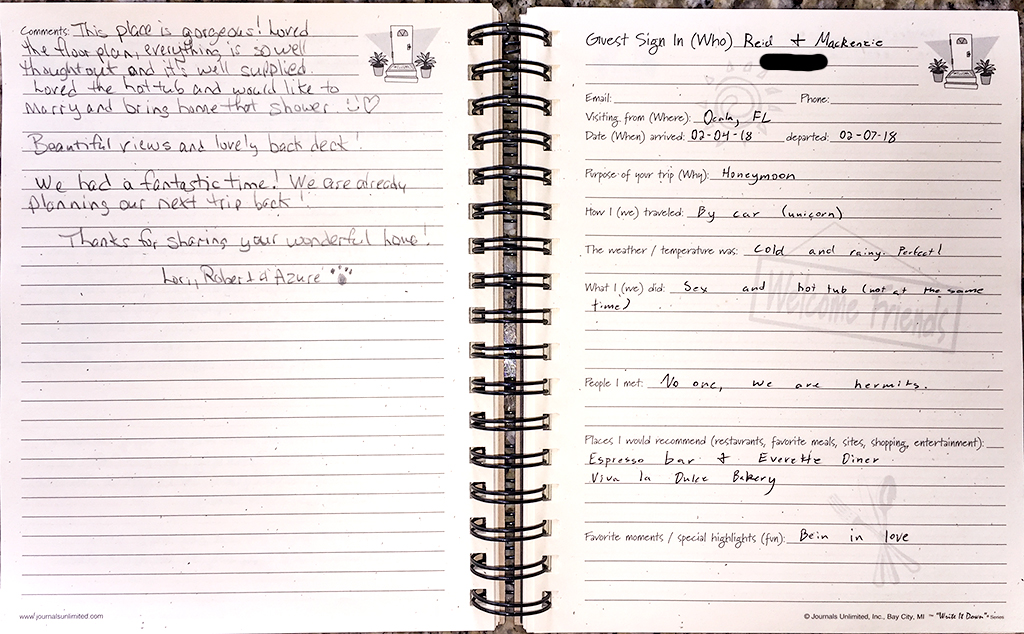 Comments: This place is gorgeous! Loved
the floor plan, everything is so well
thought out and it's well supplied.
Loved the hot tub and would like to
marry and bring home that shower
Beautiful views and lovely back deck!
We had a fantastic time! We are already
planning our next trip back!!
Thanks for sharing your wonderful home!
Lori, Robert & Azure
www.journalsunlimited.com
Guest Sign In (Who) Reid + Mackenzie
Email: Phone:
Visiting from (Where): Ocala, FL
Date (When) arrived: 02-04-18 departed: 02-07-18
Purpose of your trip (Why): Honeymoon
How I (we) traveled: By car (unicorn)
The weather / temperature was: Cold and rainy. Perfect!
What I (we) did: Sex and hot tub (not at the same
time)
Welcome Friends
People I met: No one, we are hermits.
Places I would recommend (restaurants, favorite meals, sites, shopping, entertainment):
Espresso bar + Everette Diner
Viva la Dulce Bakery
Favorite moments / special highlights (fun): Bein in love
© Journals Unlimited, Inc., Bay City, MI ™ "Write It Down"® Series